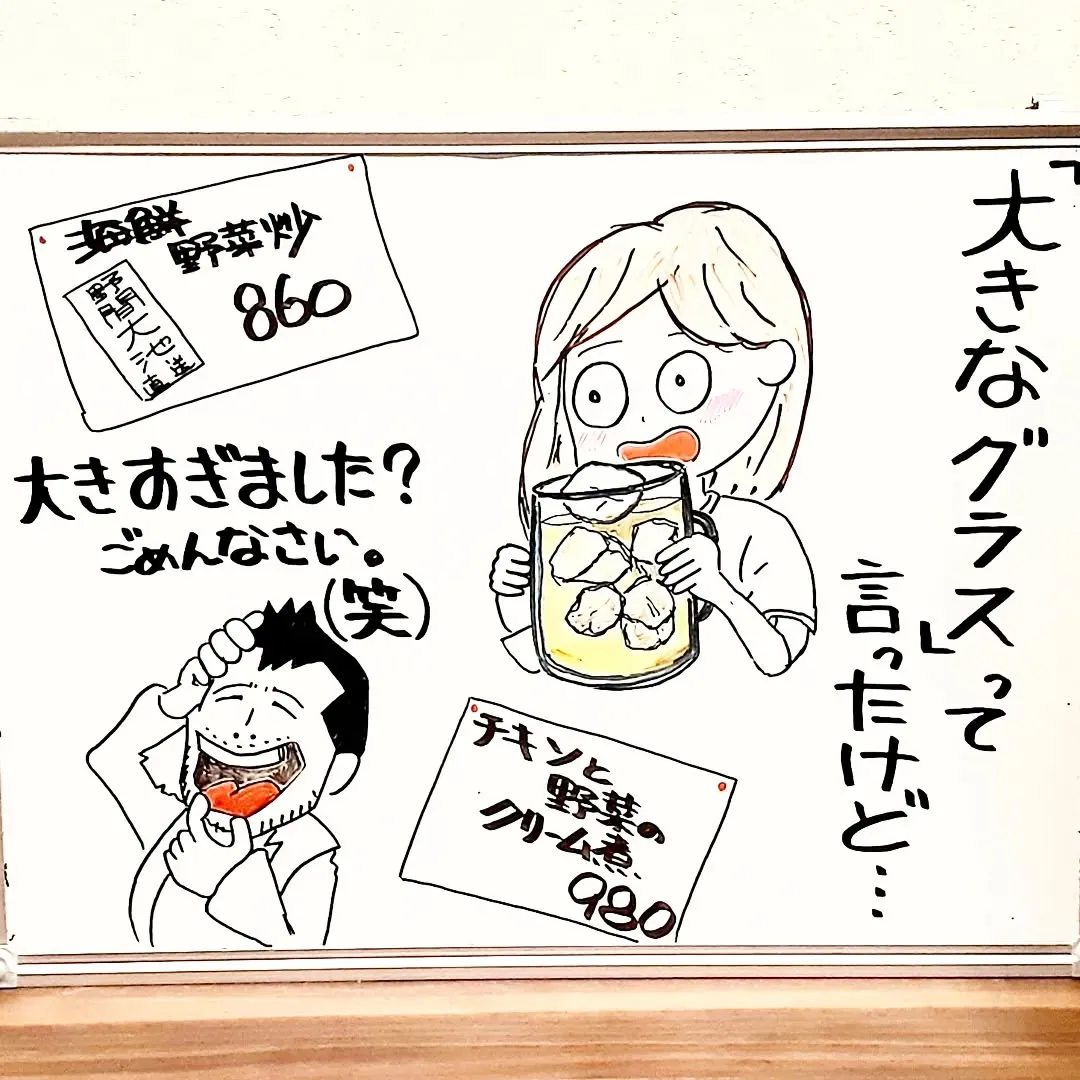 「大きなグラス」って
言ったけど…
海鮮
野菜炒
860
野間大池直送
大きすぎました？
ごめんなさい。
(笑)
チキンと
野菜の
クリーム煮
980